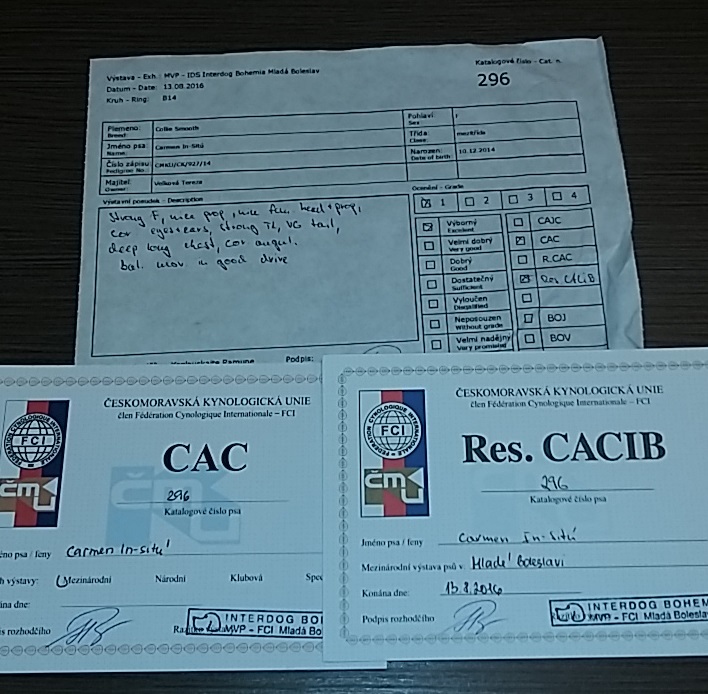 Výstava - Exh.: MVP - IDS Interdog Bohemia Mladá Boleslav
Datum - Date: 13.08.2016
Kruh - Ring: B14
Katalogové číslo - Cat. n.
296
Plemeno: Collie Smooth
Breed:
Jméno psa: Carmen In-Situ
Name:
Číslo zápisu: CMKU/CK/927/14
Pedigree No.:
Majitel: Velková Tereza
Owner:
Pohlaví f
Sex
Třída: mezitřída
Class:
Narozen: 10.12.2014
Date of birth
Výstavní posudek - Description
strong F, nice prop, nice fem. head + prop,
cor eyes + ears, strong TL, VG tail,
deep long chest, cor angul.
bal. mov in good drive
Ocenění - Grade
1 2 3 4
Výborný
Excellent
Velmi dobrý
Very good
Dobrý
Good
Dostatečný
Sufficient
Vyloučen
Disqualified
Neposouzen
Without grade
Velmi nadějný
Very promising
CAJC
CAC
R.CAC
Res CACIB
BOJ
BOV
Ramune
Podpis:
ČESKOMORAVSKÁ KYNOLOGICKÁ UNIE
člen Fédération Cynologique Internationale – FCI
FCI
čmku
CAC
296
Katalogové číslo psa
éno psa / feny Carmen In-situ
h výstavy: Mezinárodní Národní Klubová Spec
ána dne:
is rozhodčího
INTERDOG BO
MVP - FCI Mladá Bo
ČESKOMORAVSKÁ KYNOLOGICKÁ UNIE
člen Fédération Cynologique Internationale – FCI
FCI
čmku
Res. CACIB
296
Katalogové číslo psa
Jméno psa / feny Carmen In-Situ
Mezinárodní výstava psů v: Mladé Boleslavi
Konána dne: 13.8.2016
Podpis rozhodčího
INTERDOG BOHEM
MVP - FCI Mladá Boleslav